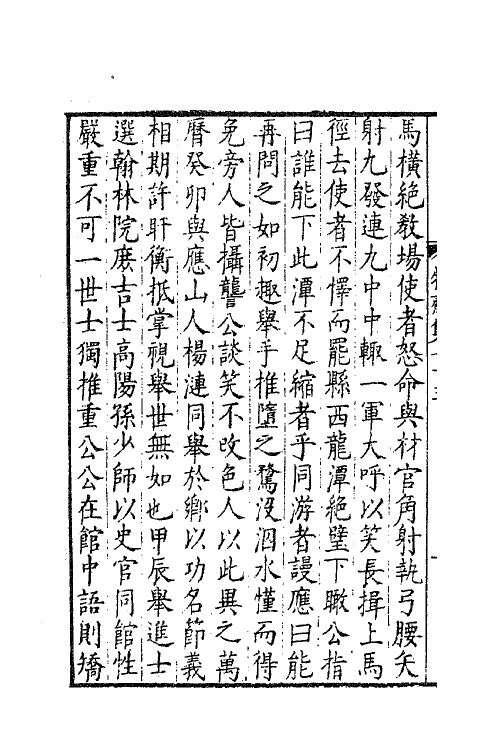 馬橫絕敎場使者怒命與材官角射執弓腰矢
射九發連九中中輙一軍大呼以笑長揖上馬
徑去使者不懌而罷縣西龍潭絕壁下瞰公指
曰誰能下此潭不足縮者乎同游者謾應曰能
再問之如初趣舉手推墮之驚沒泅水僅而得
免旁人皆攝讋公談笑不改色人以此異之萬
曆癸卯與應山人楊漣同舉於鄉以功名節義
相期許盱衡抵掌視舉世無如也甲辰舉進士
選翰林院庶吉士高陽孫少師以史官同館性
嚴重不可一世士獨推重公公在館中語則撟